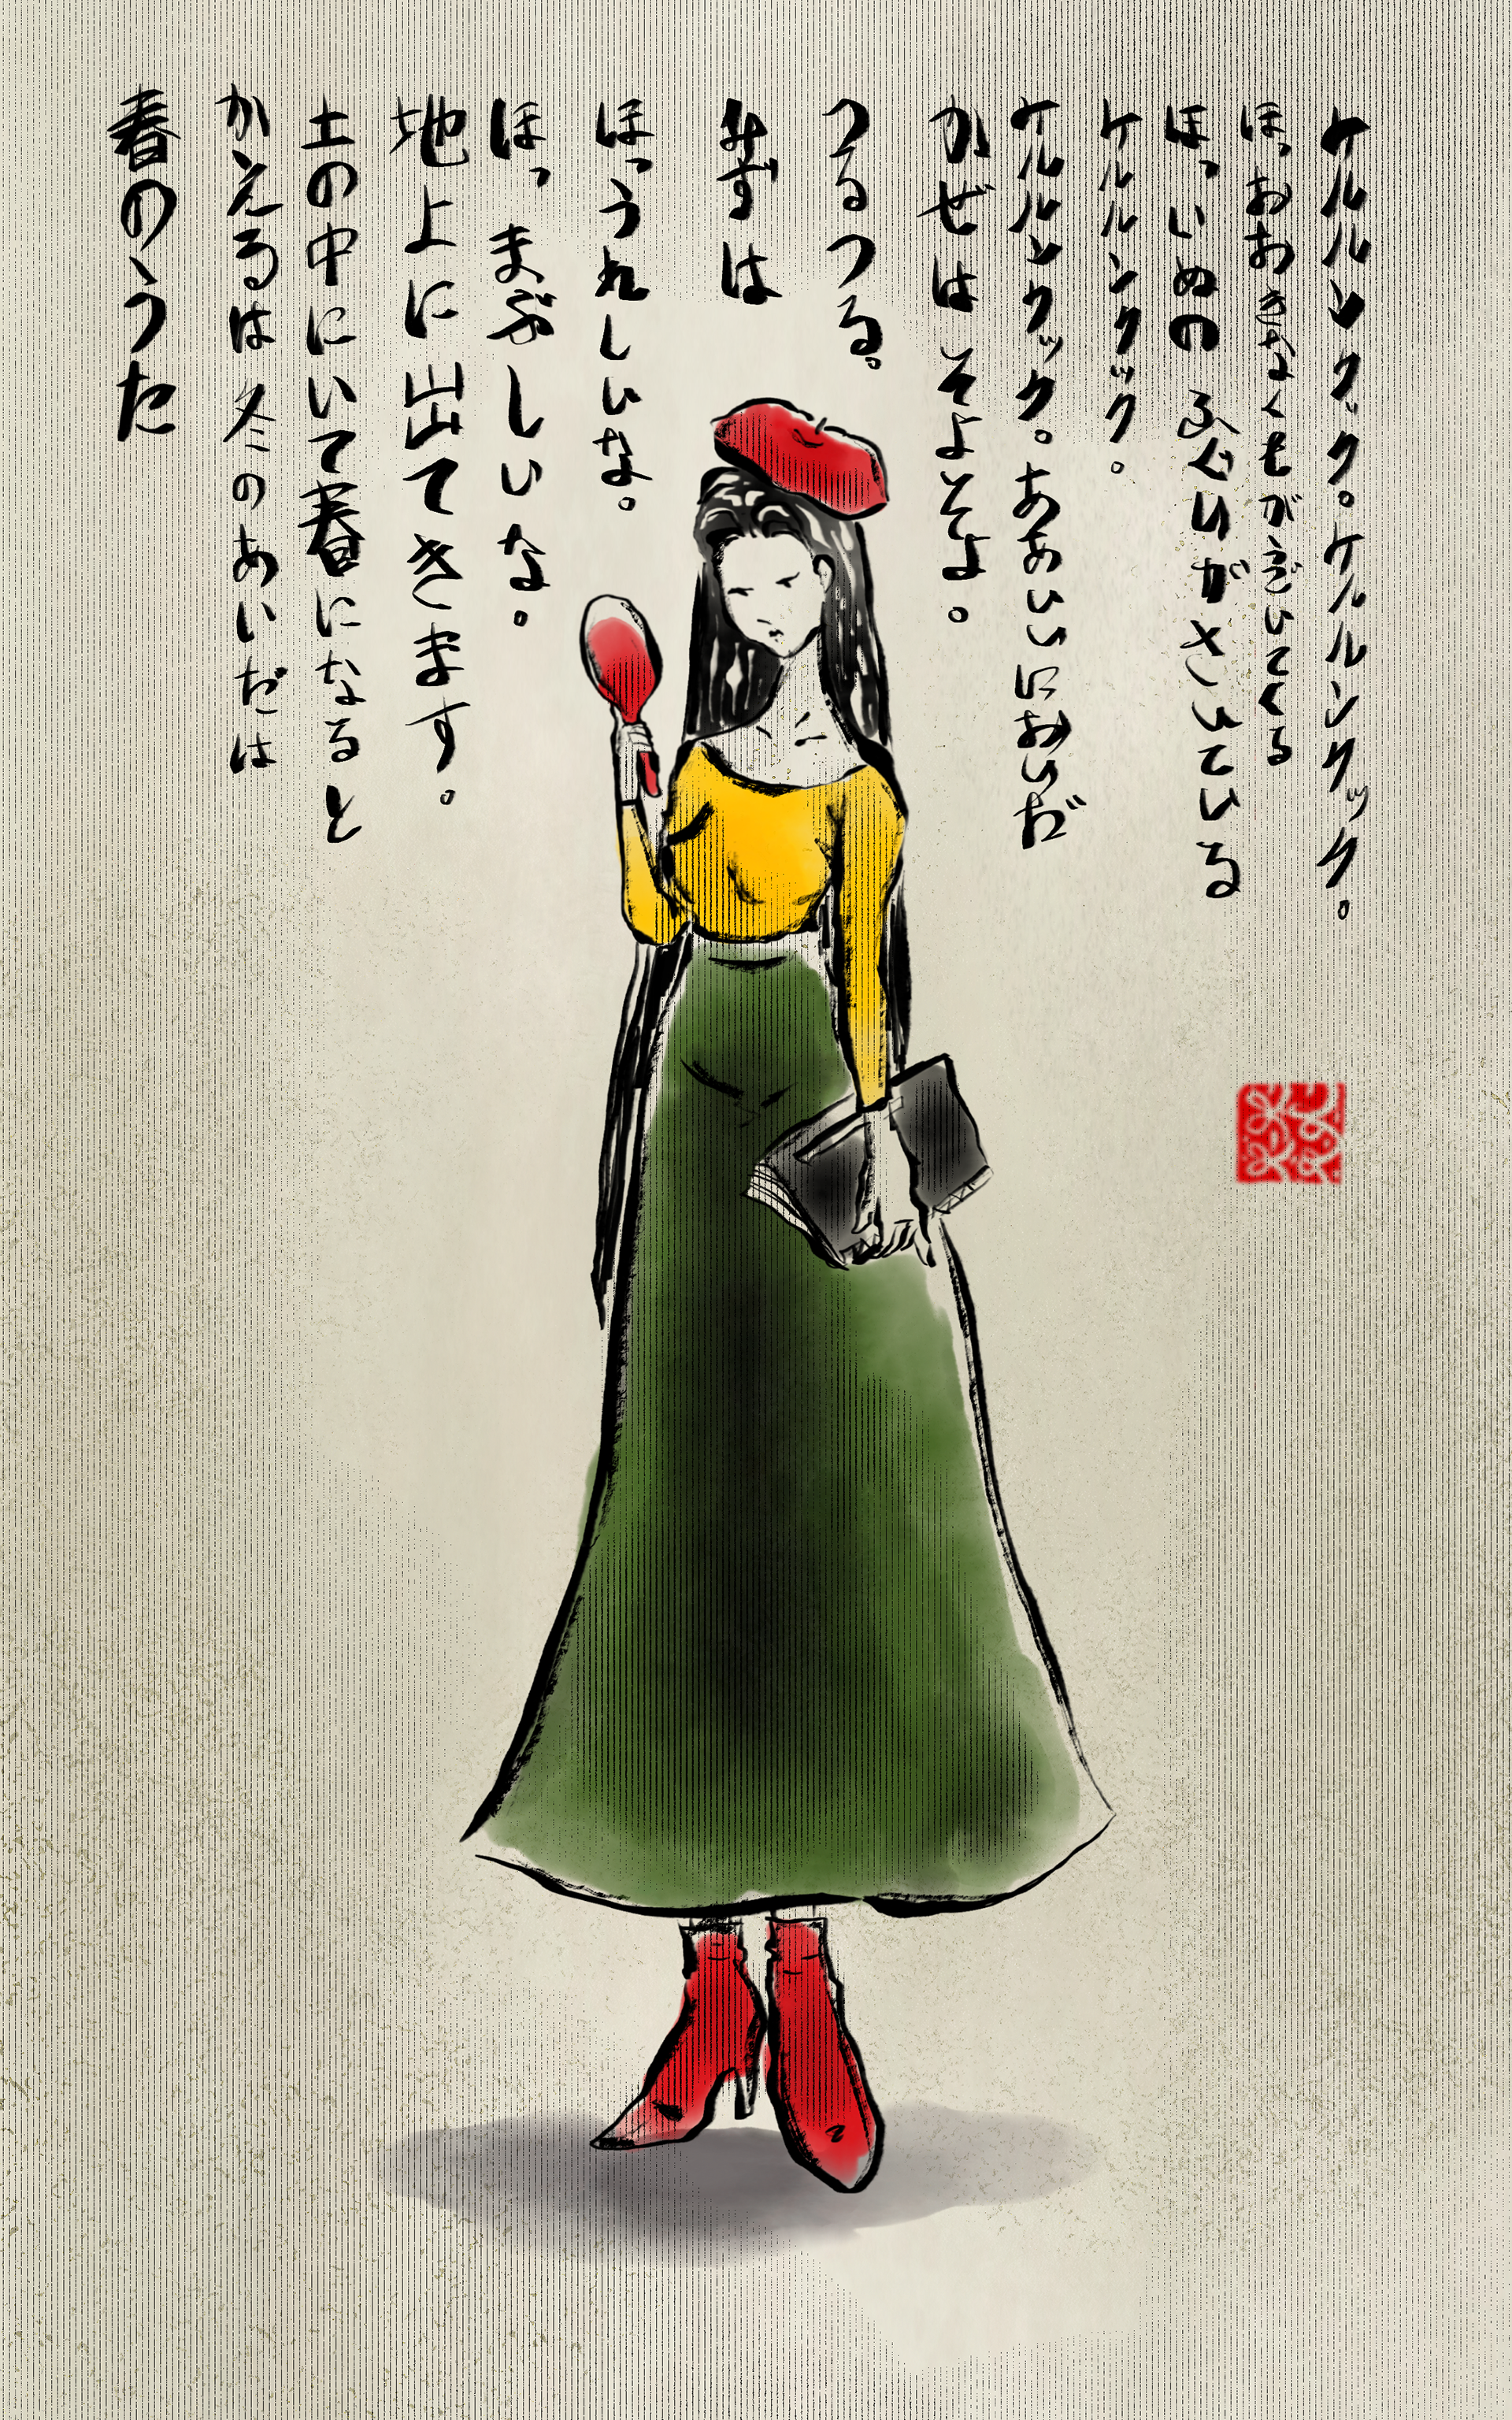 春のうた
かえるは 冬のあいだは
土の中にいて春になると
地上に出てきます。
ほっ まぶしいな。
ほっうれしいな。
みずは
つるつる。
かぜは そよそよ。
ケルルンクック。ああいいにおいだ
ケルルンクック。
ほっいぬの ふぐりがさいている
ほっおおきなくもがうごいてくる
ケルルンクック。ケルルンクック。